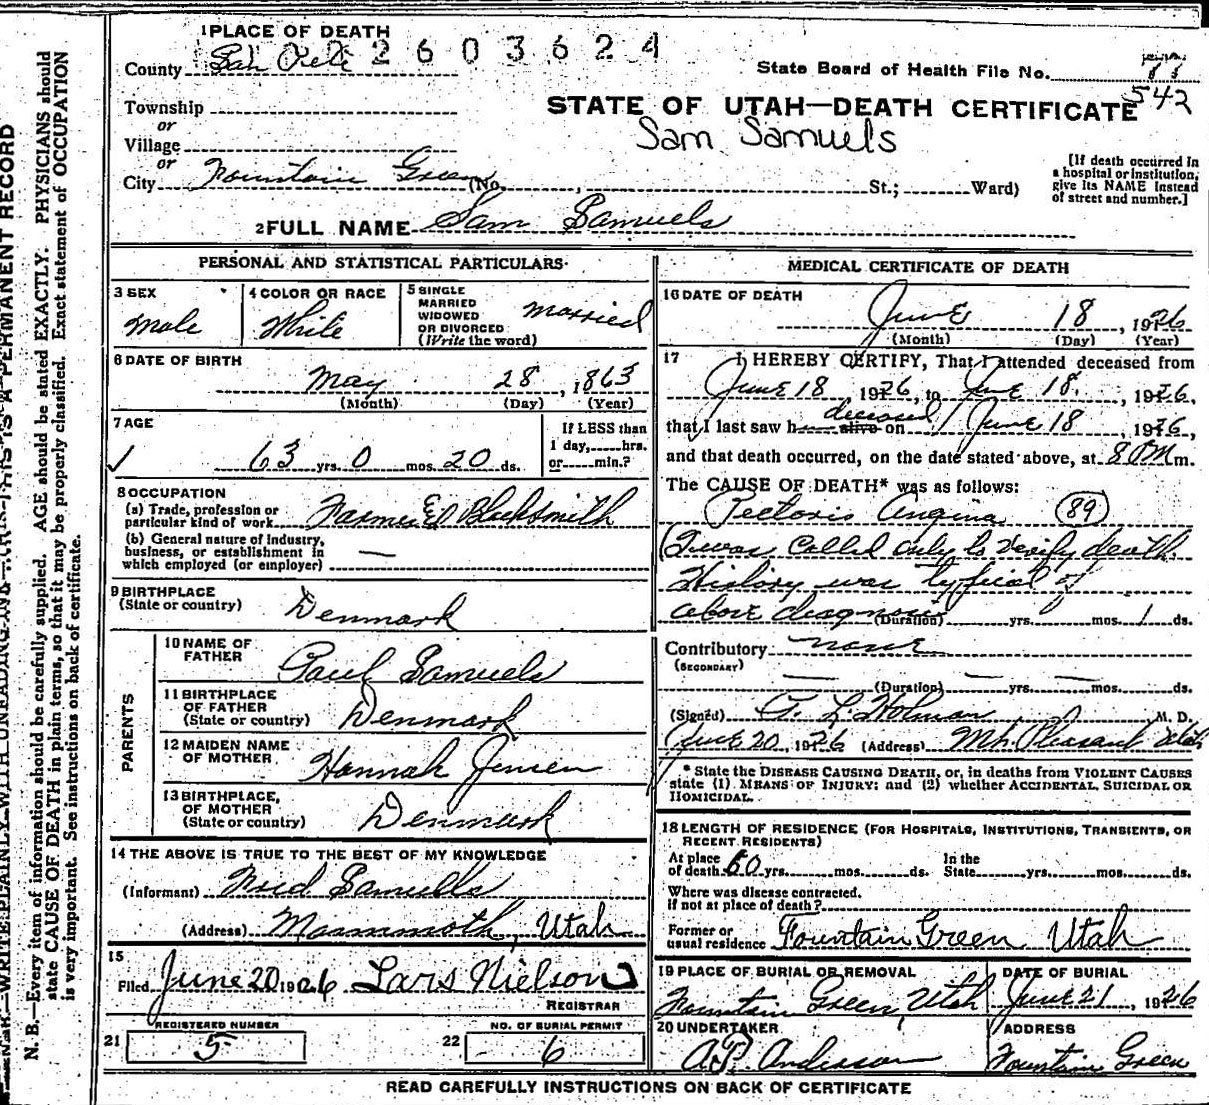 1 PLACE OF DEATH
2603624
County San Pete
State Board of Health File No. 77
542
Township
or
Village
or
City Fountain Green (No. , St.; Ward)
STATE OF UTAH—DEATH CERTIFICATE
Sam Samuels
[If death occurred in
a hospital or institution,
give its NAME instead
of street and number.]
2 FULL NAME Sam Samuels
PERSONAL AND STATISTICAL PARTICULARS
3 SEX
Male
4 COLOR OR RACE
White
5 SINGLE
MARRIED
WIDOWED
OR DIVORCED
(Write the word)
Married
6 DATE OF BIRTH
May 28, 1863
(Month) (Day) (Year)
7 AGE
63 yrs. 0 mos. 20 ds.
If LESS than
1 day, hrs.
or min.?
8 OCCUPATION
(a) Trade, profession or
particular kind of work Farmer & Blacksmith
(b) General nature of industry,
business, or establishment in
which employed (or employer) —
9 BIRTHPLACE
(State or country) Denmark
PARENTS
10 NAME OF
FATHER Paul Samuels
11 BIRTHPLACE
OF FATHER
(State or country) Denmark
12 MAIDEN NAME
OF MOTHER Hannah Jensen
13 BIRTHPLACE,
OF MOTHER
(State or country) Denmark
14 THE ABOVE IS TRUE TO THE BEST OF MY KNOWLEDGE
(Informant) Fred Samuels
(Address) Mammoth, Utah
15
Filed June 20 1926 Lars Nielson
REGISTRAR
21 REGISTERED NUMBER
5
22 NO. OF BURIAL PERMIT
6
MEDICAL CERTIFICATE OF DEATH
16 DATE OF DEATH
June 18, 1926
(Month) (Day) (Year)
17 I HEREBY CERTIFY, That I attended deceased from
June 18 1926, to June 18, 1926,
that I last saw h alive on deceased June 18, 1926,
and that death occurred, on the date stated above, at 8 PM m.
The CAUSE OF DEATH* was as follows:
Pectoris Angina (89)
(I was called only to verify death
History was typical of
above diagnosis (Duration) yrs. mos. 1 ds.
Contributory none
(SECONDARY)
(Duration) yrs. mos. ds.
(Signed) Holman M. D.
June 20, 1926 (Address) Mt. Pleasant Utah
* State the DISEASE CAUSING DEATH, or, in deaths from VIOLENT CAUSES
state (1) MEANS OF INJURY; and (2) whether ACCIDENTAL, SUICIDAL OR
HOMICIDAL.
18 LENGTH OF RESIDENCE (FOR HOSPITALS, INSTITUTIONS, TRANSIENTS, OR
RECENT RESIDENTS)
At place
of death 60 yrs. mos. ds.
In the
State yrs. mos. ds.
Where was disease contracted.
if not at place of death?
Former or
usual residence Fountain Green Utah
19 PLACE OF BURIAL OR REMOVAL
Fountain Green, Utah
DATE OF BURIAL
June 21, 1926
20 UNDERTAKER
A.P. Anderson
ADDRESS
Fountain Green
READ CAREFULLY INSTRUCTIONS ON BACK OF CERTIFICATE
WRITE PLAINLY WITH UNFADING INK—THIS IS A PERMANENT RECORD
N. B.—Every item of information should be carefully supplied. AGE should be stated EXACTLY. PHYSICIANS should
state CAUSE OF DEATH in plain terms, so that it may be properly classified. Exact statement of OCCUPATION
is very important. See instructions on back of certificate.